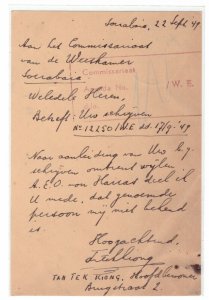 Sorrabaia, 22 Sept '49
Aan het Commissariaat
van de Weeskamer
Sorrabaia
Commissariaat
Agenda No.
/W. E.
Weledele Heren,
Betreft: Uw schrijven
No 12250/WE dd. 17/9-49
Naar aanleiding van Uw b.g.
schrijven omtrent wijlen
A.E.O. von Harras deel ik
U mede, dat genoemde
persoon mij niet bekend
is.
Hoogachtend,
TAN TEK KIONG, Hoofdbewoner
Brugstraat 2.